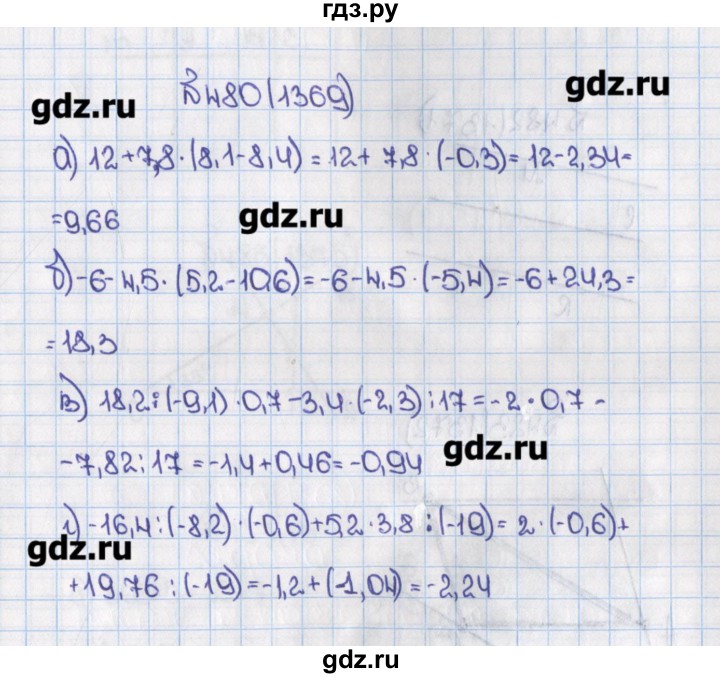 гдз.ру
№ 480 (1369)
gdz.ru
gdz.ru
а) 12 + 7,8 · (8,1 - 8,4) = 12 + 7,8 · (-0,3) = 12 - 2,34 =
= 9,66
gdz.ru
б) -6 - 4,5 · (5,2 - 10,6) = -6 - 4,5 · (-5,4) = -6 + 24,3 =
= 18,3
в) 18,2 : (-9,1) · 0,7 - 3,4 · (-2,3) : 17 = -2 · 0,7 -
- 7,82 : 17 = -1,4 + 0,46 = -0,94
gdz.ru
г) -16,4 : (-8,2) · (-0,6) + 5,2 · 3,8 : (-19) = 2 · (-0,6) +
gdz.ru
+ 19,76 : (-19) = -1,2 + (-1,04) = -2,24
gdz.ru